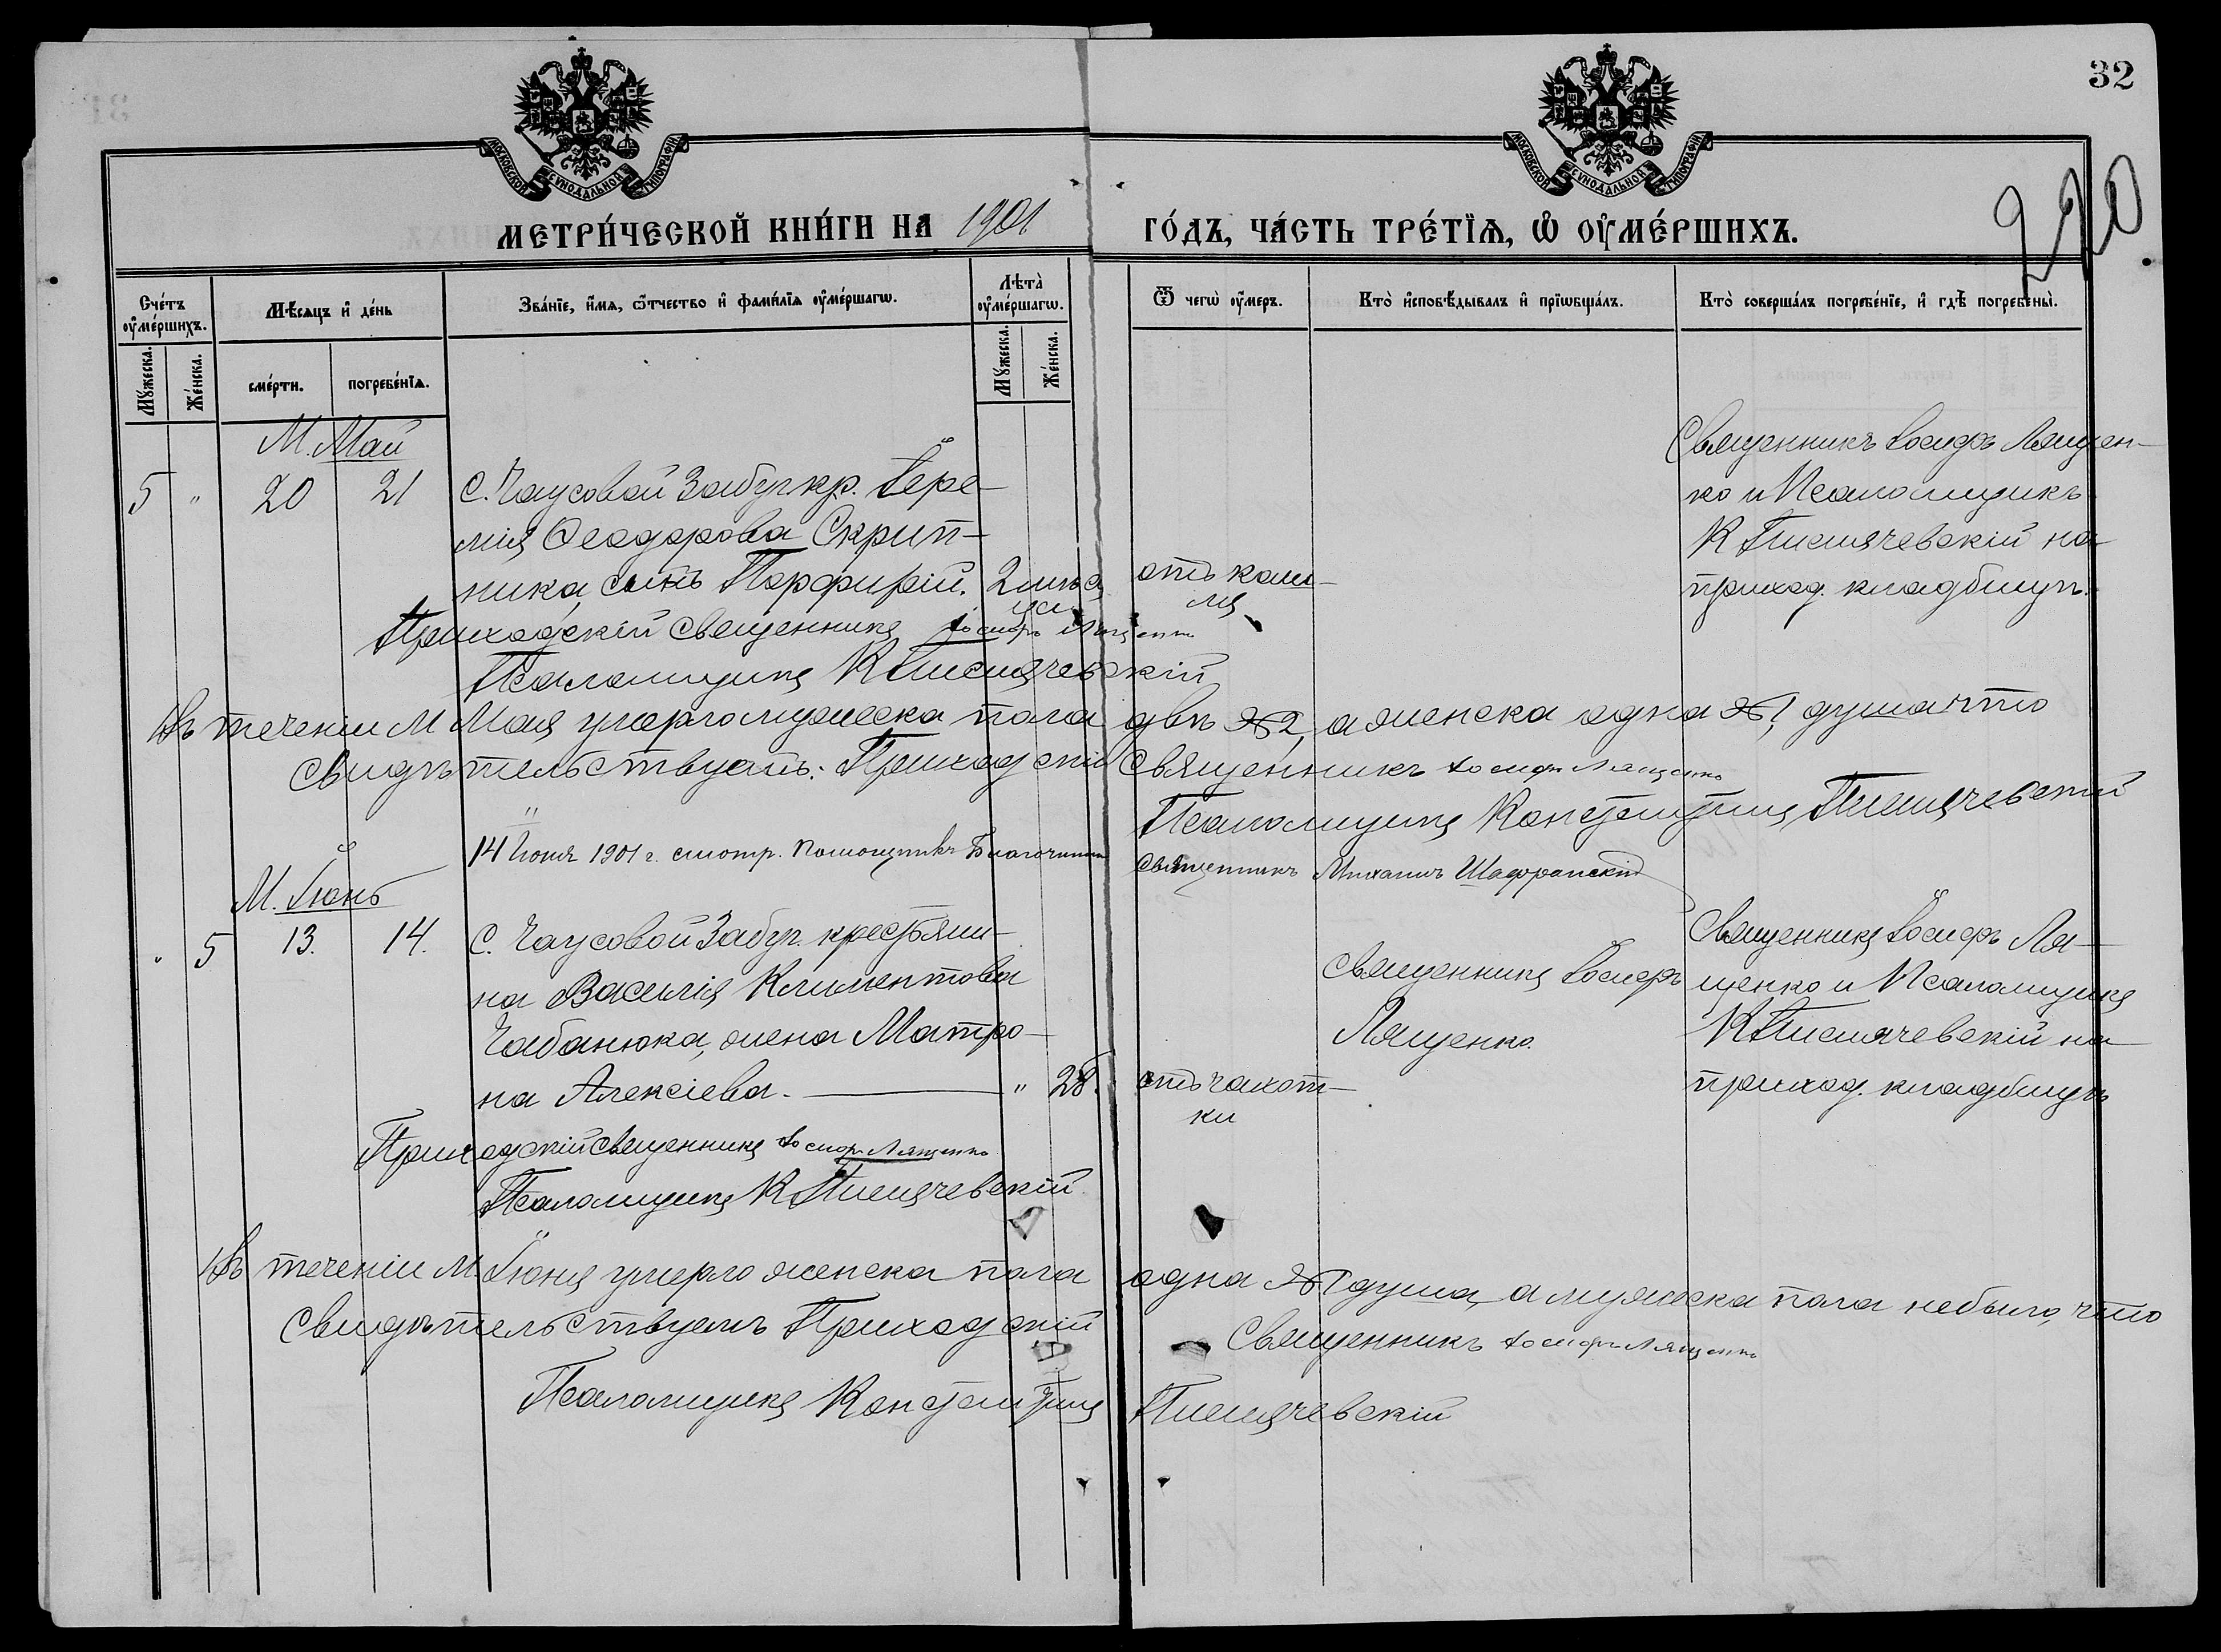 32
220
МОСКОВСКОЙ СѴНОДАЛЬНОЙ ТИПОГРАФІИ
МОСКОВСКОЙ СѴНОДАЛЬНОЙ ТИПОГРАФІИ
МЕТРИ́ЧЕСКОЙ КНИ́ГИ НА 1901 ГО́ДЪ, ЧА́СТЬ ТРЕ́ТЇѦ, Ѡ҆ ОУ҆МЕ́РШИХЪ.
Счéтъ оу҆мéршихъ.
Мѣ́сяцъ и҆ дéнь
Звáнїе, и҆́мя, ѻ҆́тчество и҆ фамѝлїя оу҆мéршагѡ.
Лѣтà оу҆мéршагѡ.
Ѿ чегѡ̀ оу҆́меръ.
Ктò и҆сповѣ́дывалъ и҆ прїѡбщáлъ.
Ктò совершáлъ погребéнїе, и҆ гдѣ̀ погребены̀.
Мꙋ́жеска.
Жéнска.
смéрти.
погребéнїя.
Мꙋ́жеска.
Жéнска.
М. Май
5 " 20 21 С. Чаусовой Забуг. кр. Іере-
мія Ѳеодорова Скрип-
ника, сынъ Порфирій. 2 мѣся
ца
отъ каш-
ля
Священникъ Іосифъ Лящен-
ко и Псаломщикъ
К Писмячевскій на
приход. кладбищѣ.
Приходскій священникъ Іосифъ Лященко
Псаломщикъ К Писмячевскій
Въ теченіи М Мая умерло мужеска пола двѣ 2, а женска одна 1, душа что
свидѣтельствуемъ: Приходскій Священникъ Іосифъ Лященко
Псаломщикъ Константинъ Писмячевскій
14 Іюня 1901 г. смотр. Помощникъ Благочиннаго священникъ Михаилъ Шафранскій
М. Іюнь
" 5 13. 14. С. Чаусовой Забуг. крестьяни-
на Василія Климентова
Чабанюка, жена Матро-
на Алексіева. " 28.
отъ чахот-
ки
Священникъ Іосифъ
Лященко.
Священникъ Іосифъ Ля-
щенко и Псаломщикъ
К Писмячевскій на
приход. кладбищѣ
Приходскій священникъ Іосифъ Лященко
Псаломщикъ К Писмячевскій
Въ теченіи М. Іюня умерло женска пола одна 1 душа, а мужеска пола небыло, что
свидѣтельствуемъ Приходскій Священникъ Іосифъ Лященко
Псаломщикъ Константинъ Писмячевскій